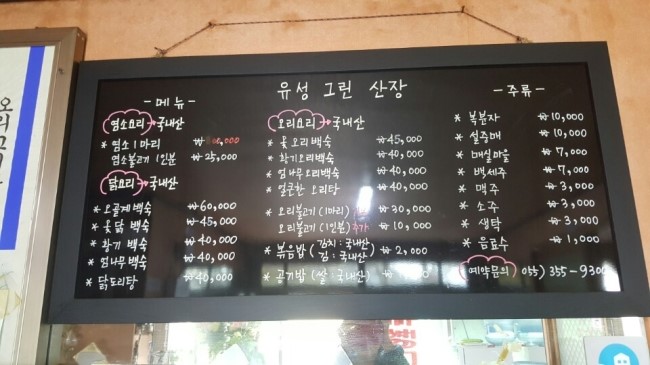 유성 그린 산장
- 메뉴 -
염소요리 → 국내산
* 염소 1마리 ₩ 000
염소불고기 1인분 ₩ 25,000
닭요리 → 국내산
* 오골계 백숙 ₩ 60,000
* 옻닭 백숙 ₩ 45,000
* 황기 백숙 ₩ 40,000
* 엄나무 백숙 ₩ 40,000
* 닭도리탕 ₩ 40,000
오리요리 → 국내산
* 옻오리백숙 ₩ 45,000
* 황기오리백숙 ₩ 40,000
* 엄나무오리백숙 ₩ 40,000
* 얼큰한 오리탕 ₩ 40,000
* 오리불고기 (1마리) ₩ 30,000
오리불고기 (1인분) 추가 ₩ 10,000
* 볶음밥 (김치 : 국내산 김 : 국내산) ₩ 2,000
* 공기밥 (쌀 : 국내산) ₩
- 주류 -
* 복분자 ₩ 10,000
* 설중매 ₩ 10,000
* 매실마을 ₩ 7,000
* 백세주 ₩ 7,000
* 맥주 ₩ 3,000
* 소주 ₩ 3,000
* 생탁 ₩ 3,000
* 음료수 ₩ 1,000
예약문의 055) 355-930